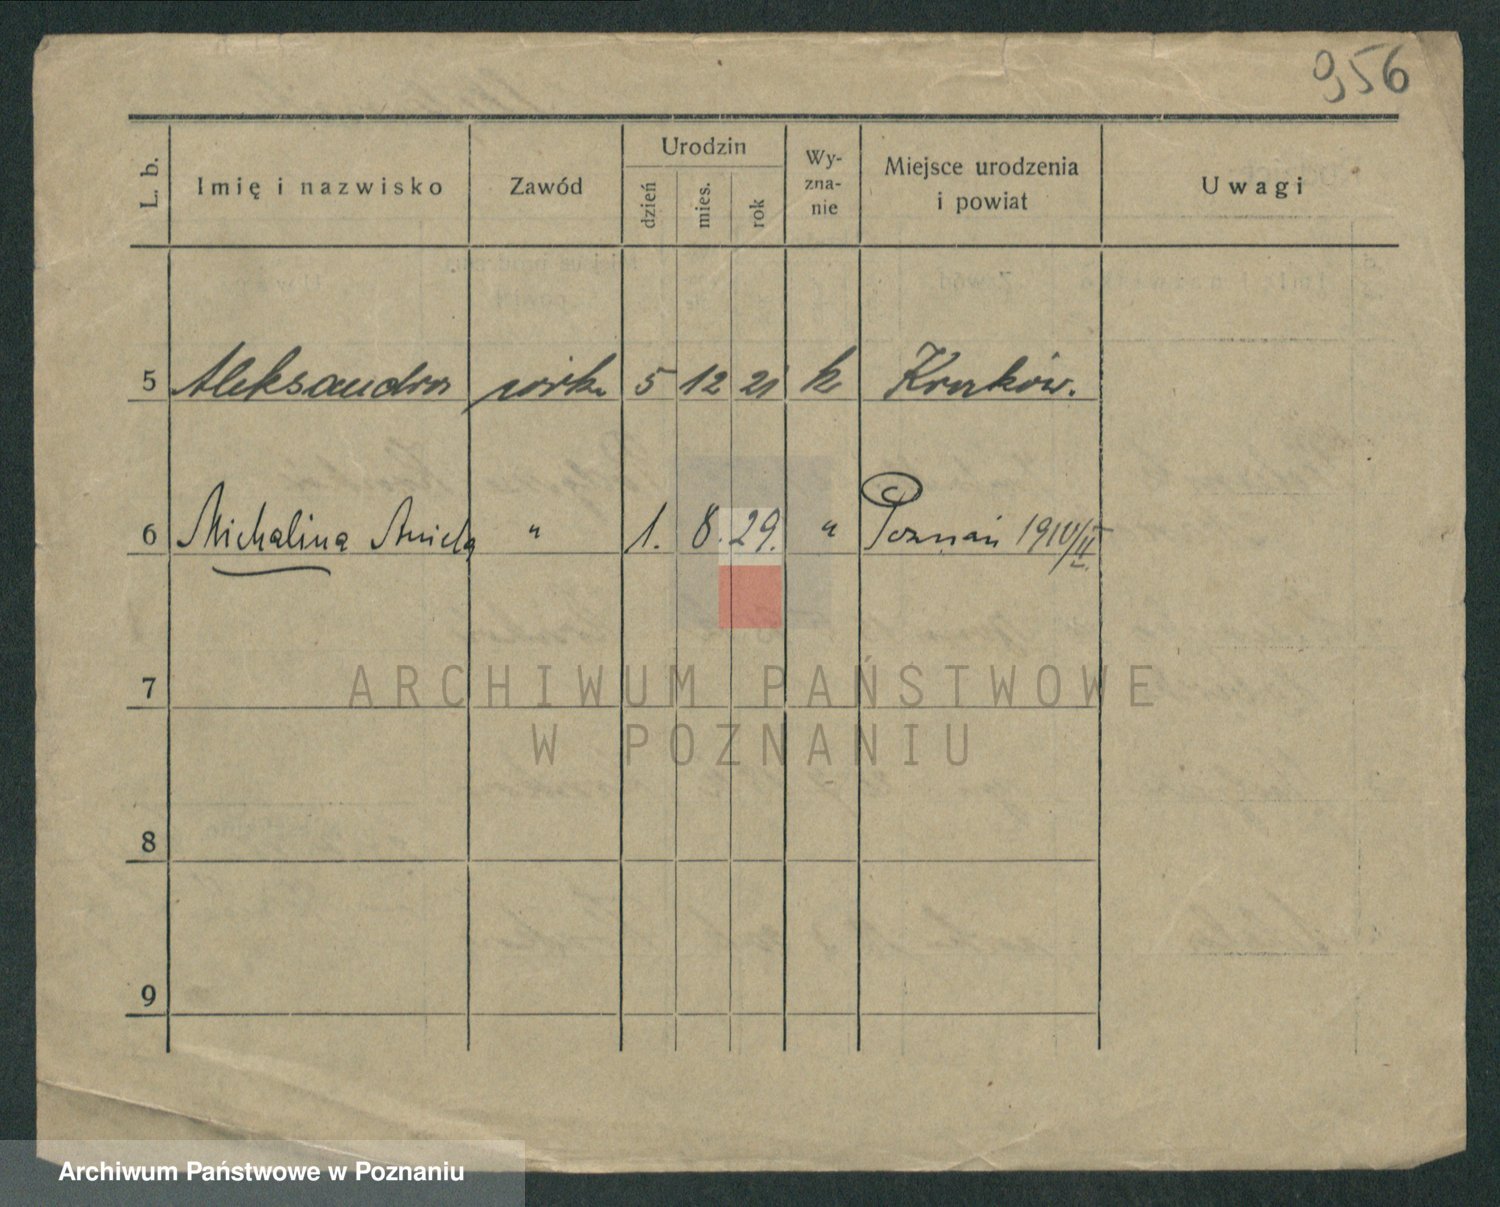 956
L. b.
Imię i nazwisko
Zawód
Urodzin
dzień
mies.
rok
Wy-
zna-
nie
Miejsce urodzenia
i powiat
Uwagi
5 Aleksandra córka 5 12 21 k Kraków.
6 Michalina Aniela " 1. 8. 29. " Poznań 1910/II.
7
8
9
ARCHIWUM PAŃSTWOWE
W POZNANIU
Archiwum Państwowe w Poznaniu